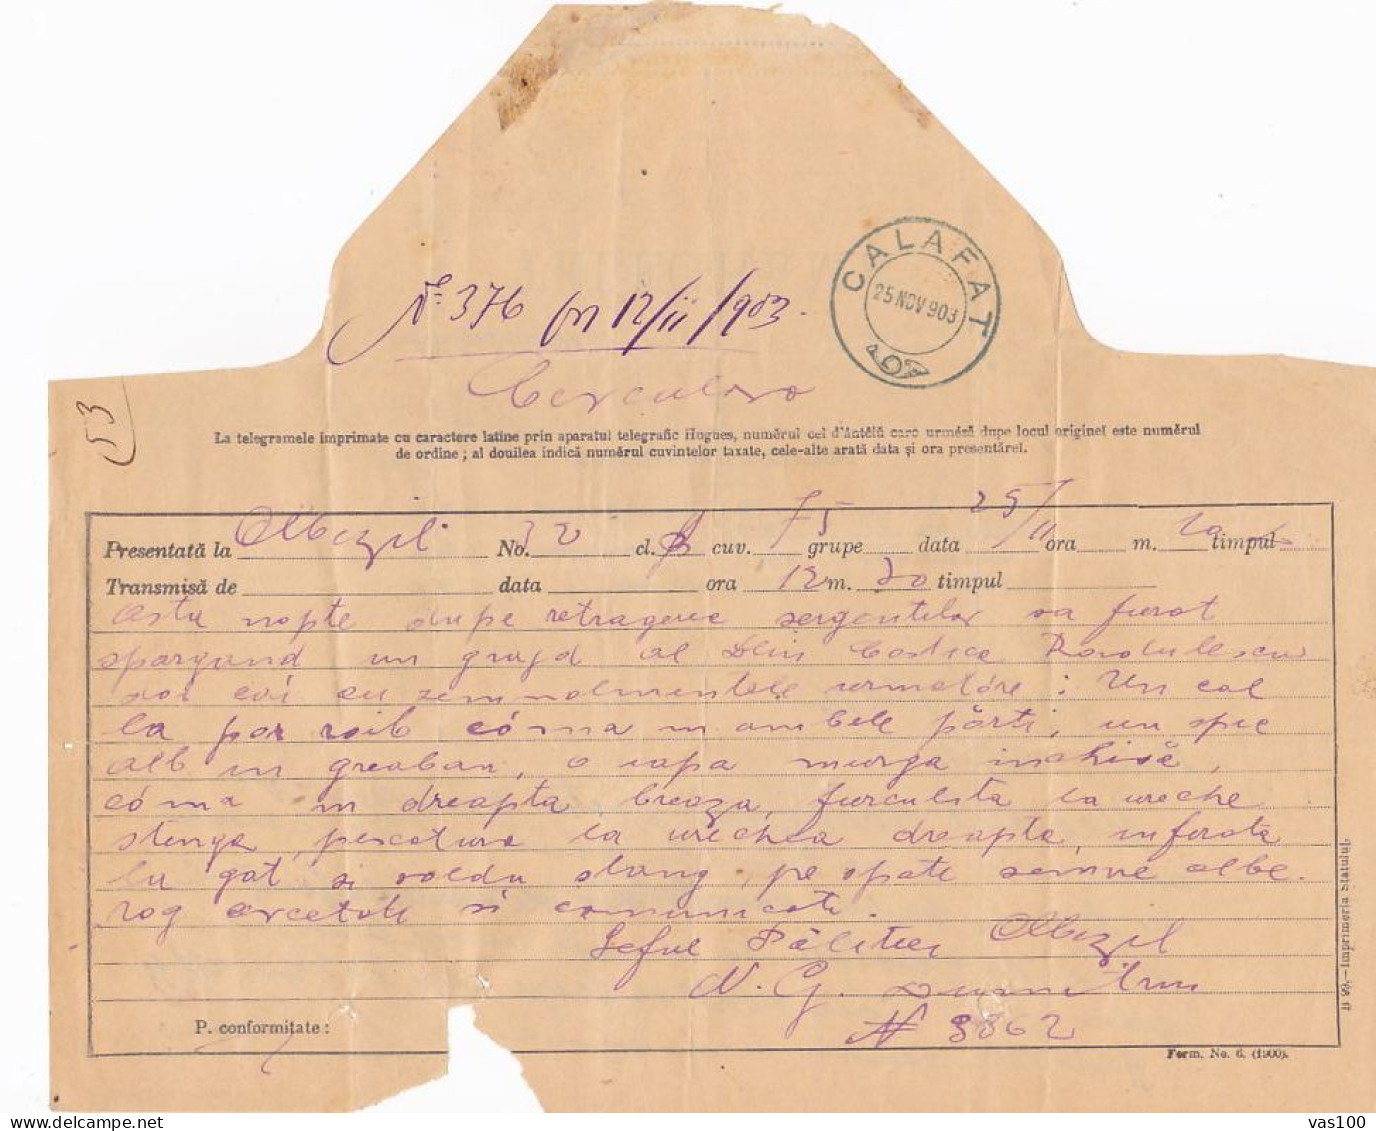 № 376 din 12/11/903.
CALAFAT
25 NOV 903
Circulara
53
La telegramele imprimate cu caractere latine prin aparatul telegrafic Hugues, numĕrul cel d'ântêiŭ care urméză dupe locul origineĭ este numĕrul
de ordine ; al douilea indică numĕrul cuvintelor taxate, cele-alte arată data și ora presentăreĭ.
Presentată la No. 32 cl. cuv. 75 grupe data 25/11 ora m. timpul
Transmisă de data ora 12 m. 20 timpul
Asta nopte dupe retragerea sergentilor sa furat
spargand un grajd al Dlui Costica Radulescu
doi cai cu semnalmentele urmatóre : Un cal
la par roib cóma in ambele părti, un spic
alb in greaban, o iapa murga inchisă,
cóma in dreapta, breaza, furculita la ureche
stinga, piscatura la urechea dreapta, inferata
la gat si soldu stang, pe spate semne albe.
rog arcetati si comunicati.
Seful Politiei
N. G. Dumitru
N 3862
P. conformitate :
Form. No. 6. (1900).
Imprimeria Statuluĭ.
vas100